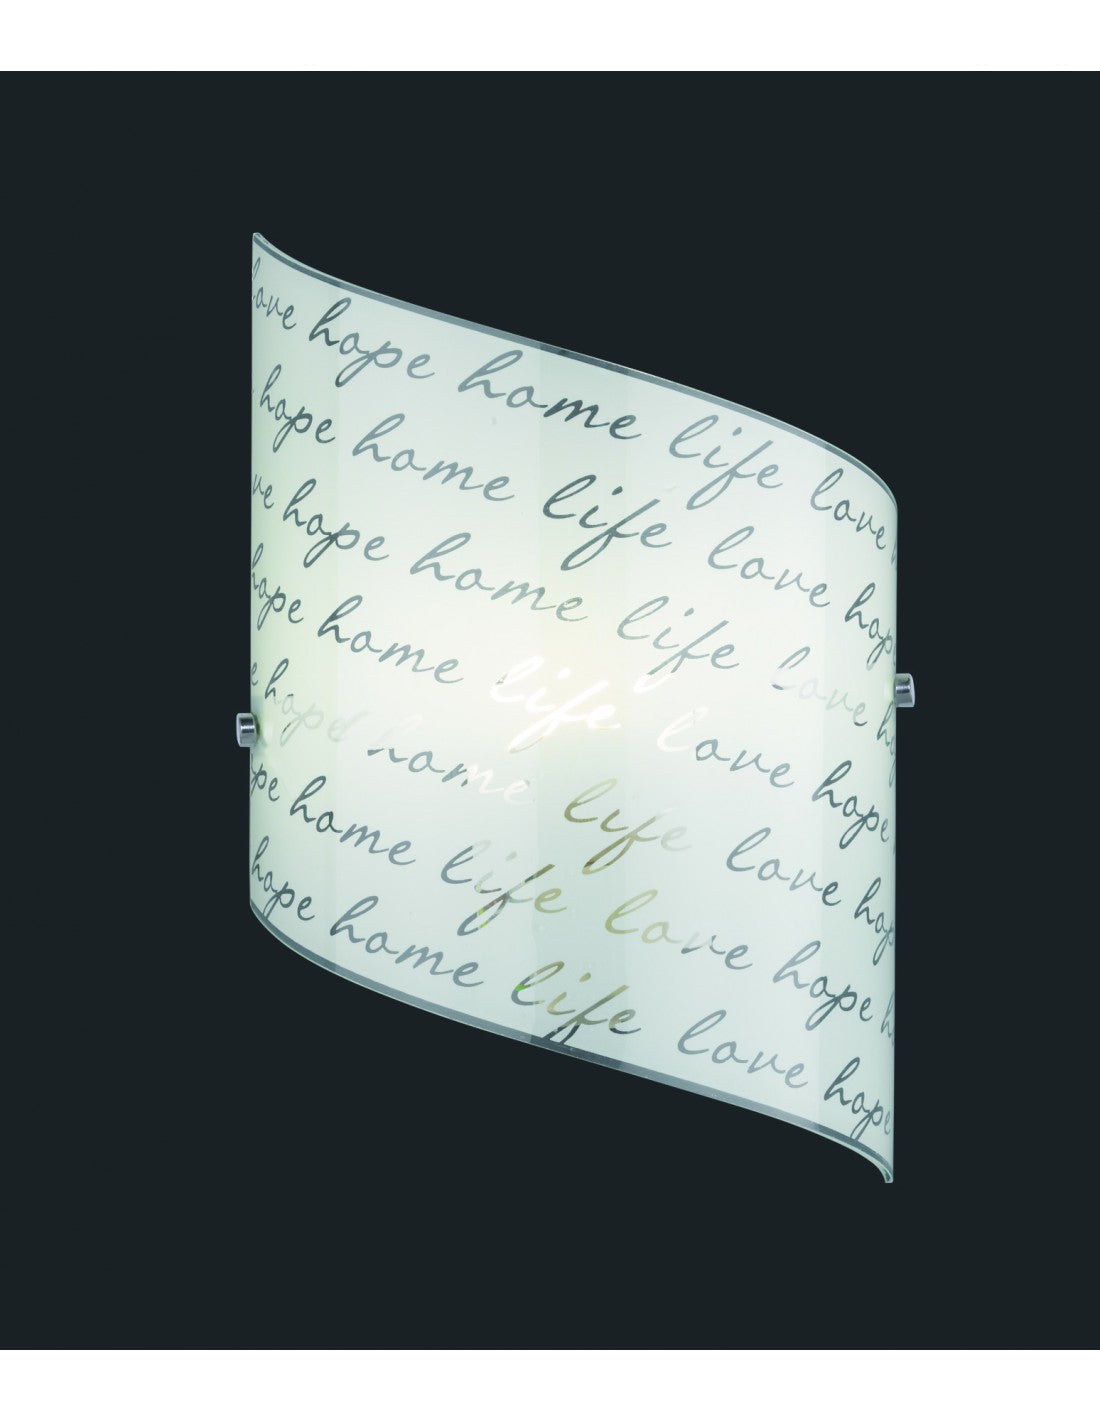 love hope home life love
hope home life love hope
ve hope home life love
hope home life love hope
e hope home life love hope
pe home life love hope
hope home life love hope